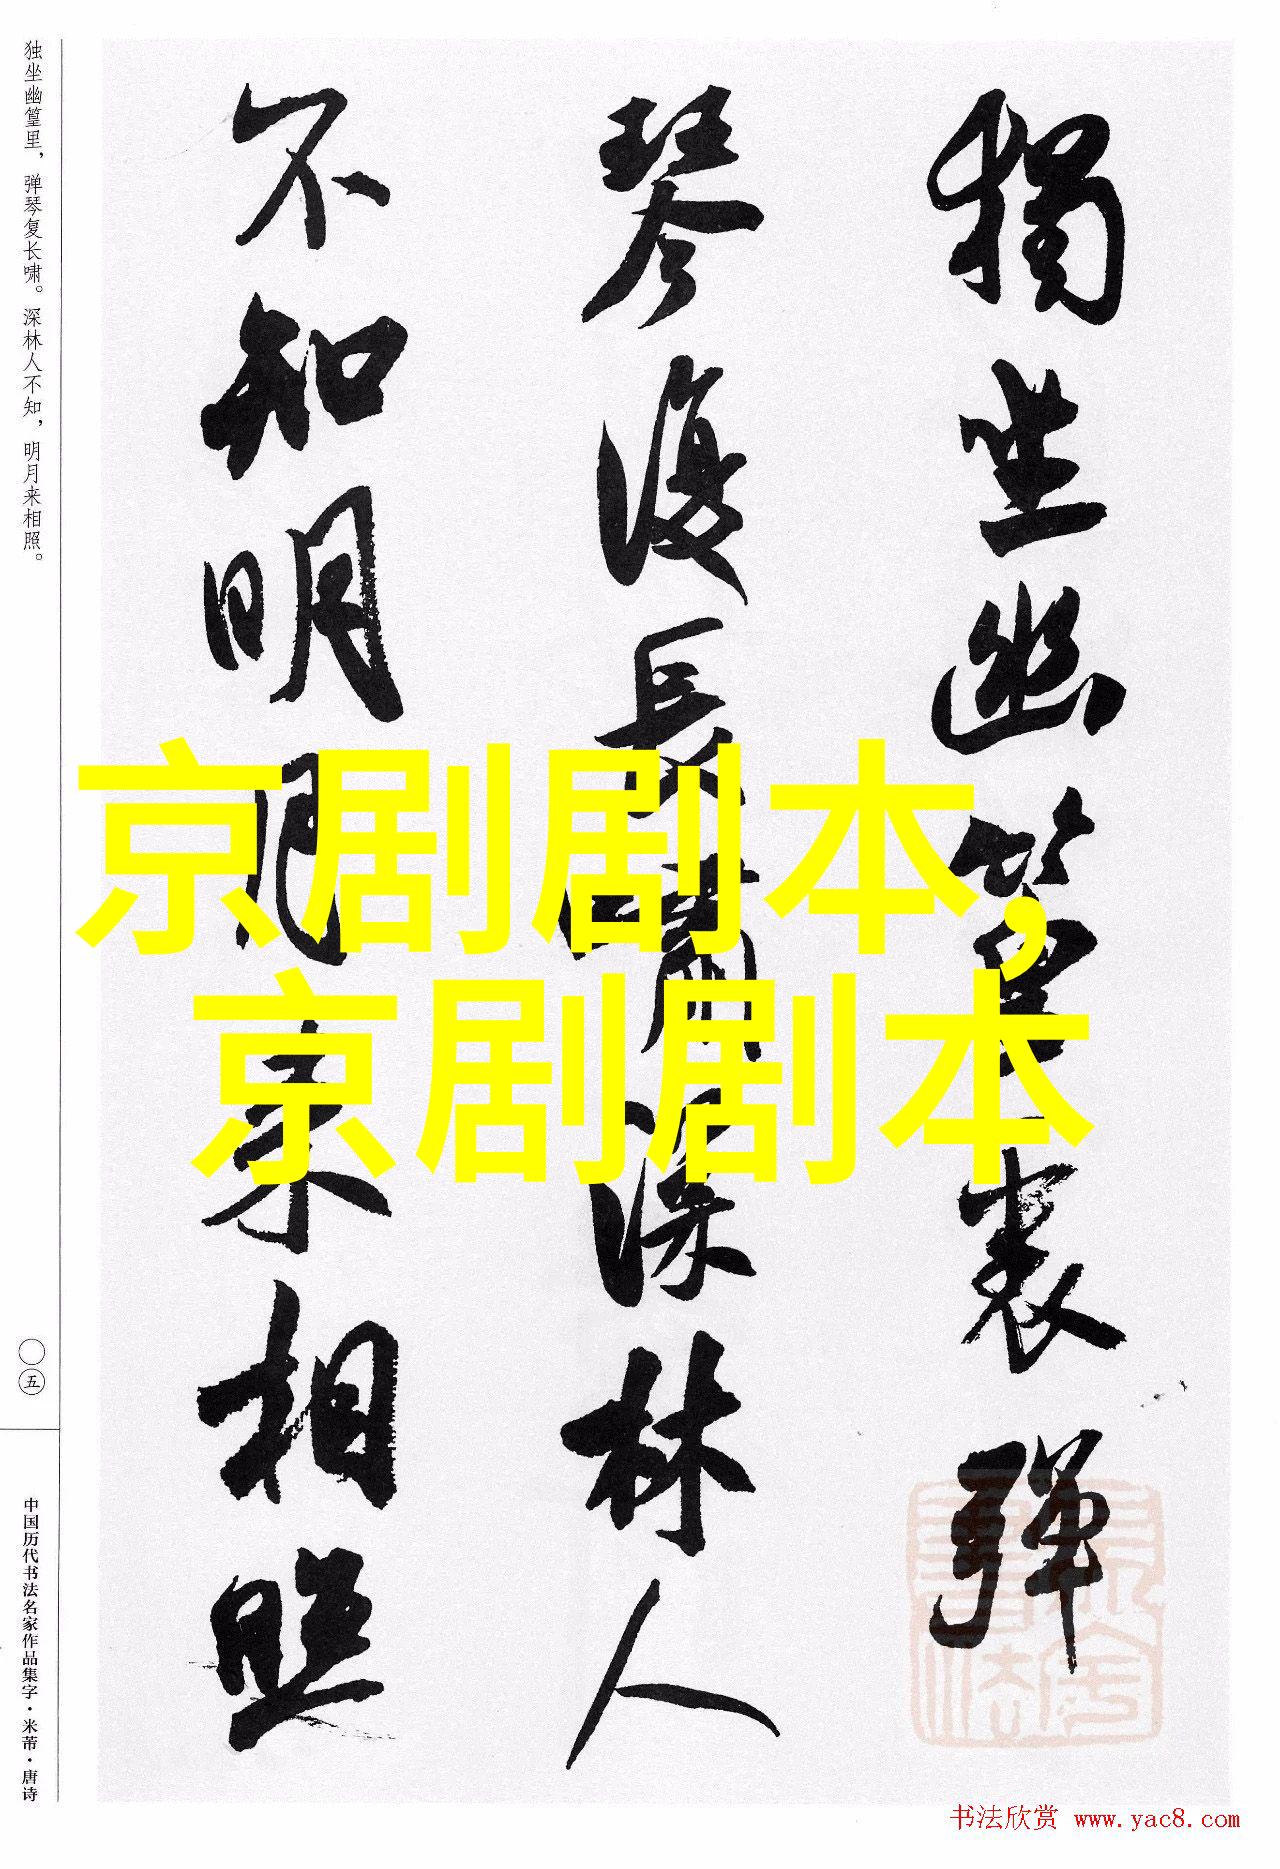 獨坐幽篁裏彈
琴復長嘯深林人
不知明月来相照
京剧剧本,
京剧剧本
独坐幽篁里，弹琴复长啸。深林人不知，明月来相照。
〇五
中国历代书法名家作品集字·米芾·唐诗
书法欣赏 www.yac8.com